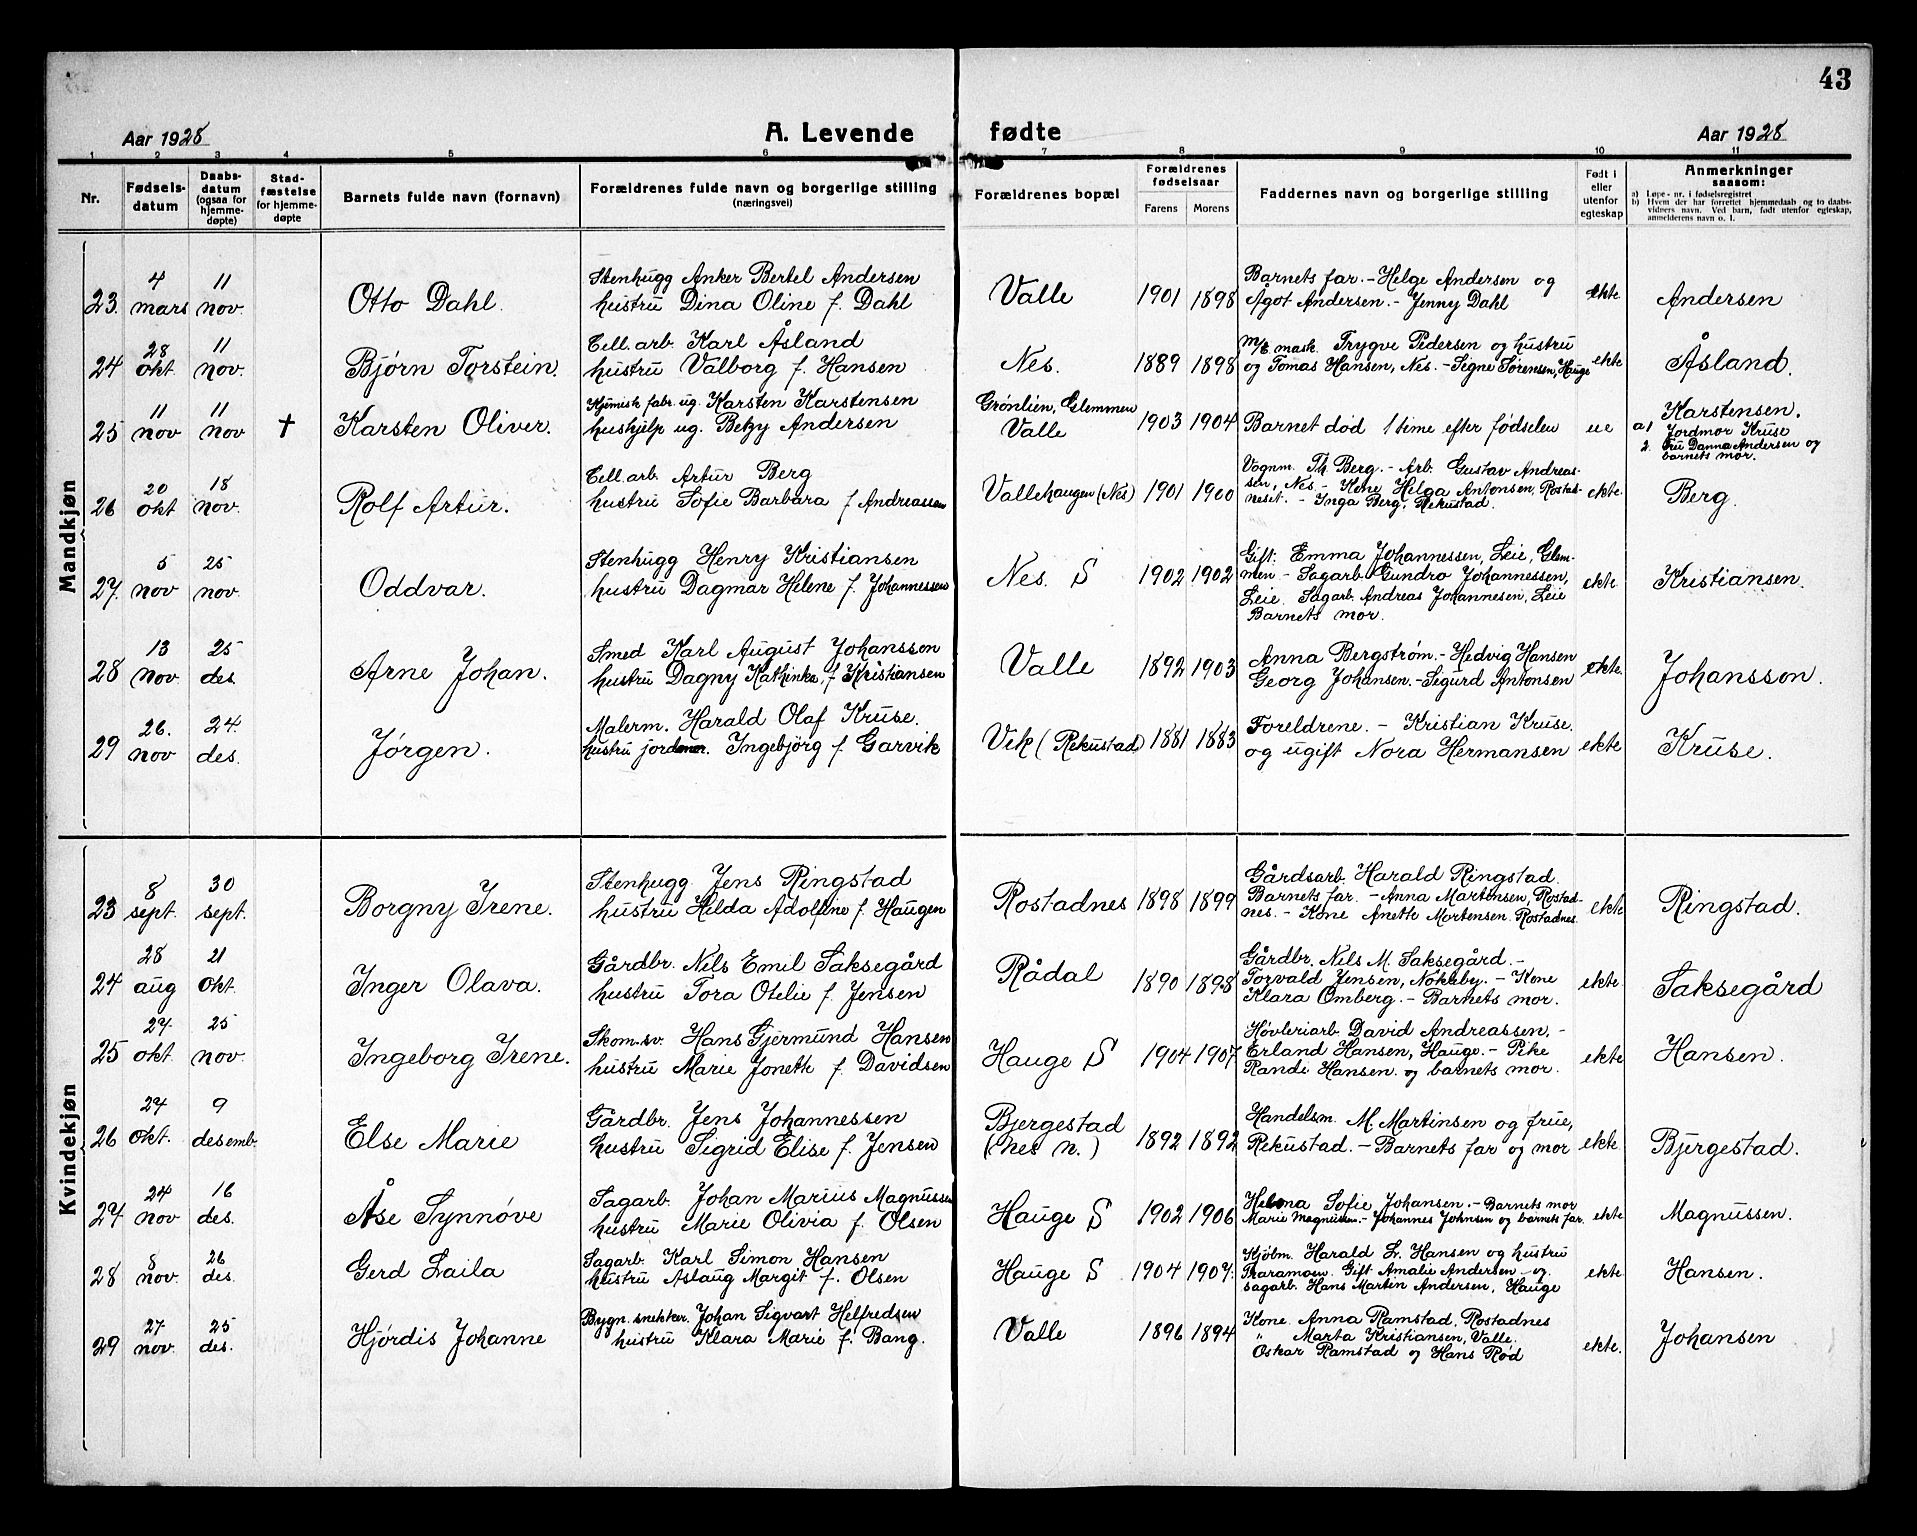 43
Aar 1928 A. Levende fødte Aar 1928
1 2 3 4 5 6 7 8 9 10 11
Nr. Fødselsdatum Daabsdatum (ogsaa for hjemmedøpte) Stadfæstelse for hjemmedøpte Barnets fulde navn (fornavn) Forældrenes fulde navn og borgerlige stilling (næringsvei) Forældrenes bopæl Forældrenes fødselsaar Farens Morens Faddernes navn og borgerlige stilling Født i eller utenfor egteskap Anmerkninger saasom:
a) Løpe-nr. i fødselsregistret
b) Hvem der har forrettet hjemmedaab og to daabsvidners navn. Ved barn, født utenfor egteskap, anmelderens navn o. l.
Mandkjøn
23. 4 mars 11 nov. Otto Dahl. Stenhugg Anker Bertel Andersen
hustru Dina Oline f. Dahl Valle 1901 1898 Barnets far. - Helge Andersen og
Ågot Andersen. - Jenny Dahl ekte Andersen
24 28 okt 11 nov. Bjørn Torstein. Cell. arb. Karl Åsland
hustru Valborg f. Hansen Nes. 1889 1898 m/c mask. Trygve Pedersen og hustru
og Tomas Hansen, Nes. - Signe Sørensen, Hauge ekte Åsland.
25 11 nov 11 nov † Karsten Oliver. Kjemisk fabr. ug. Karsten Karstensen
hushjelp ug. Betzy Andersen Grønlien, Glemmen
Valle 1903 1904 Barnet død 1 time efter fødselen ue Karstensen.
a1 Jordmor Kruse
2. Fru Danna Andersen og
barnets mor.
26 20 okt 18 nov. Rolf Artur. Cell. arb. Artur Berg
hustru Sofie Barbara f Andreassen Vallehaugen (Nes) 1901 1900 Vognm. Th. Berg. - Arb. Gustav Andreas-
sen, Nes - Kone Helga Antonsen, Rostad-
neset. - Inga Berg, Rekustad. ekte. Berg.
27. 5 nov 25 nov. Oddvar. Stenhugg Henry Kristiansen
hustru Dagmar Helene f. Johannessen Nes. S 1902 1902 Gift: Emma Johannessen, Leie, Glem-
men - Sagarb. Gundro Johannessen,
Leie. Sagarb. Andreas Johannesen, Leie
Barnets mor. ekte Kristiansen.
28 13 nov. 25 des. Arne Johan. Smed Karl August Johansson
hustru Dagny Kathinka, f. Kristiansen Valle 1892 1903 Anna Bergstrøm. - Hedvig Hansen
Georg Johansen. - Sigurd Antonsen ekte. Johansson.
29 26. nov 24. des. Jørgen. Malerm. Harald Olaf Kruse.
hustru jordmor. Ingebjörg f. Garvik Vik (Rekustad) 1881 1883 Foreldrene. - Kristian Kruse.
og ugift Nora Hermansen ekte Kruse.
Kvindekjøn
23 8 sept. 30 sept. Borgny Irene. Stenhugg Jens Ringstad
hustru Hilda Adolfine f. Haugen Rostadnes 1898 1899 Gårdsarb. Harald Ringstad.
Barnets far. - Anna Martensen, Rostad-
nes. - Kone Aneth Mortensen. Rostadnes. ekte Ringstad.
24 28 aug 21 okt. Inger Olava. Gårdbr. Nils Emil Saksegård
hustru Tora Otelie f. Jensen Rådal 1890 1898 Gårdbr. Nils M. Saksegård. -
Torvald Jensen, Nokleby. - Kone
Klara Omberg. - Barnets mor. ekte. Saksegård
25 27 okt 25 nov. Ingeborg Irene. Skom. sv. Hans Gjermund Hansen
hustru Marie Joneth f. Davidsen Hauge S 1904 1907 Høvleriarb. David Andreassen. -
Erland Hansen, Hauge. - Pike
Randi Hansen. og barnets mor. ekte Hansen.
26 27 okt. 9 desemb. Else Marie Gårdbr. Jens Johannessen
hustru Sigrid Elise f. Jensen Bjergestad
(Nes n.) 1892 1892 Handelsm. M. Martinsen og frue,
Rekustad. - Barnets far og mor ekte Bjergestad.
27 24 nov 16 des. Åse Synnøve Sagarb. Johan Marius Magnussen
hustru Marie Olivia f. Olsen Hauge S 1902 1906 Helena Sofie Johansen. - Barnets mor
Marie Magnussen. - Johannes Johnsen og barnets far. ekte Magnussen.
28 8 nov. 26 des. Gerd Laila Sagarb. Karl Simon Hansen
hustru Aslaug Margit f. Olsen Hauge S 1904 1907. Kjølm. Harald L. Hansen og hustru
Gift Amalie Andersen - og
sagarb. Hans Martin Andersen, Hauge ekte. Hansen.
29 27 nov. 25 des. Hjördis Johanne Bygn. snekker. Johan Sigvart Helfredsen
hustru Klara Marie f. Bang. Valle 1896 1894 Kone. Anna Ramstad, Rostadnes
" Marta Kristiansen, Valle.
Oskar Ramstad og Hans Rød ekte. Johansen